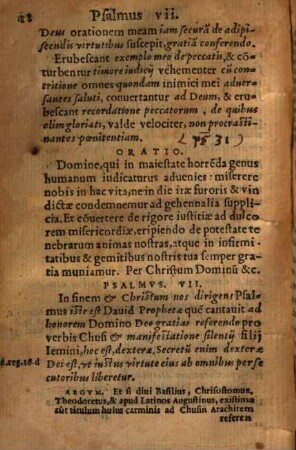 28 Psalmus vii.
Deus orationem meam iam securâ de adipi-
scendis virtutibus suscepit, gratiâ conferendo.
Erubescant exemplo meo de peccatis, & cõ-
turbentur timore iudicij vehementer cũ con-
tritione omnes quondam inimici mei aduer-
santes saluti, conuertantur ad Deum, & eru-
bescant recordatione peccatorum, de quibus
olim gloriati, valde velociter, non procrasti-
nantes pœnitentiam.
ps 31
ORATIO.
Domine, qui in maiestate horrẽda genus
humanum iudicaturus aduenies: miserere
nobis in hac vita, ne in die iræ furoris & vin
dictæ condemnemur ad gehennalia suppli-
cia. Et cõuertere de rigore iustitiæ ad dulco
rem misericordiæ, eripiendo de potestate te
nebrarum animas nostras, atque in infirmi-
tatibus & gemitibus nostris tua semper gra-
tia muniamur. Per Christum Dominũ &c.
PSALMVS. VII.
In finem & Christum nos dirigens Psal-
mus iste est Dauid Prophetæ quẽ cantauit ad
honorem Domino Deo gratias referendo pro
verbis Chusi & manifestatione silentij filij
Iemini, hoc est, dexteræ, Secretũ enim dexteræ
2.reg.16.d
Dei est, vt iustus virtute eius ab omnibus perse
cutoribus liberetur.
ARGVM. Et si diui Basilius, Chrisostomus,
Theodoretus, & apud Latinos Augustinus, existima
rũt titulum huius carminis ad Chusin Arachitem
referen